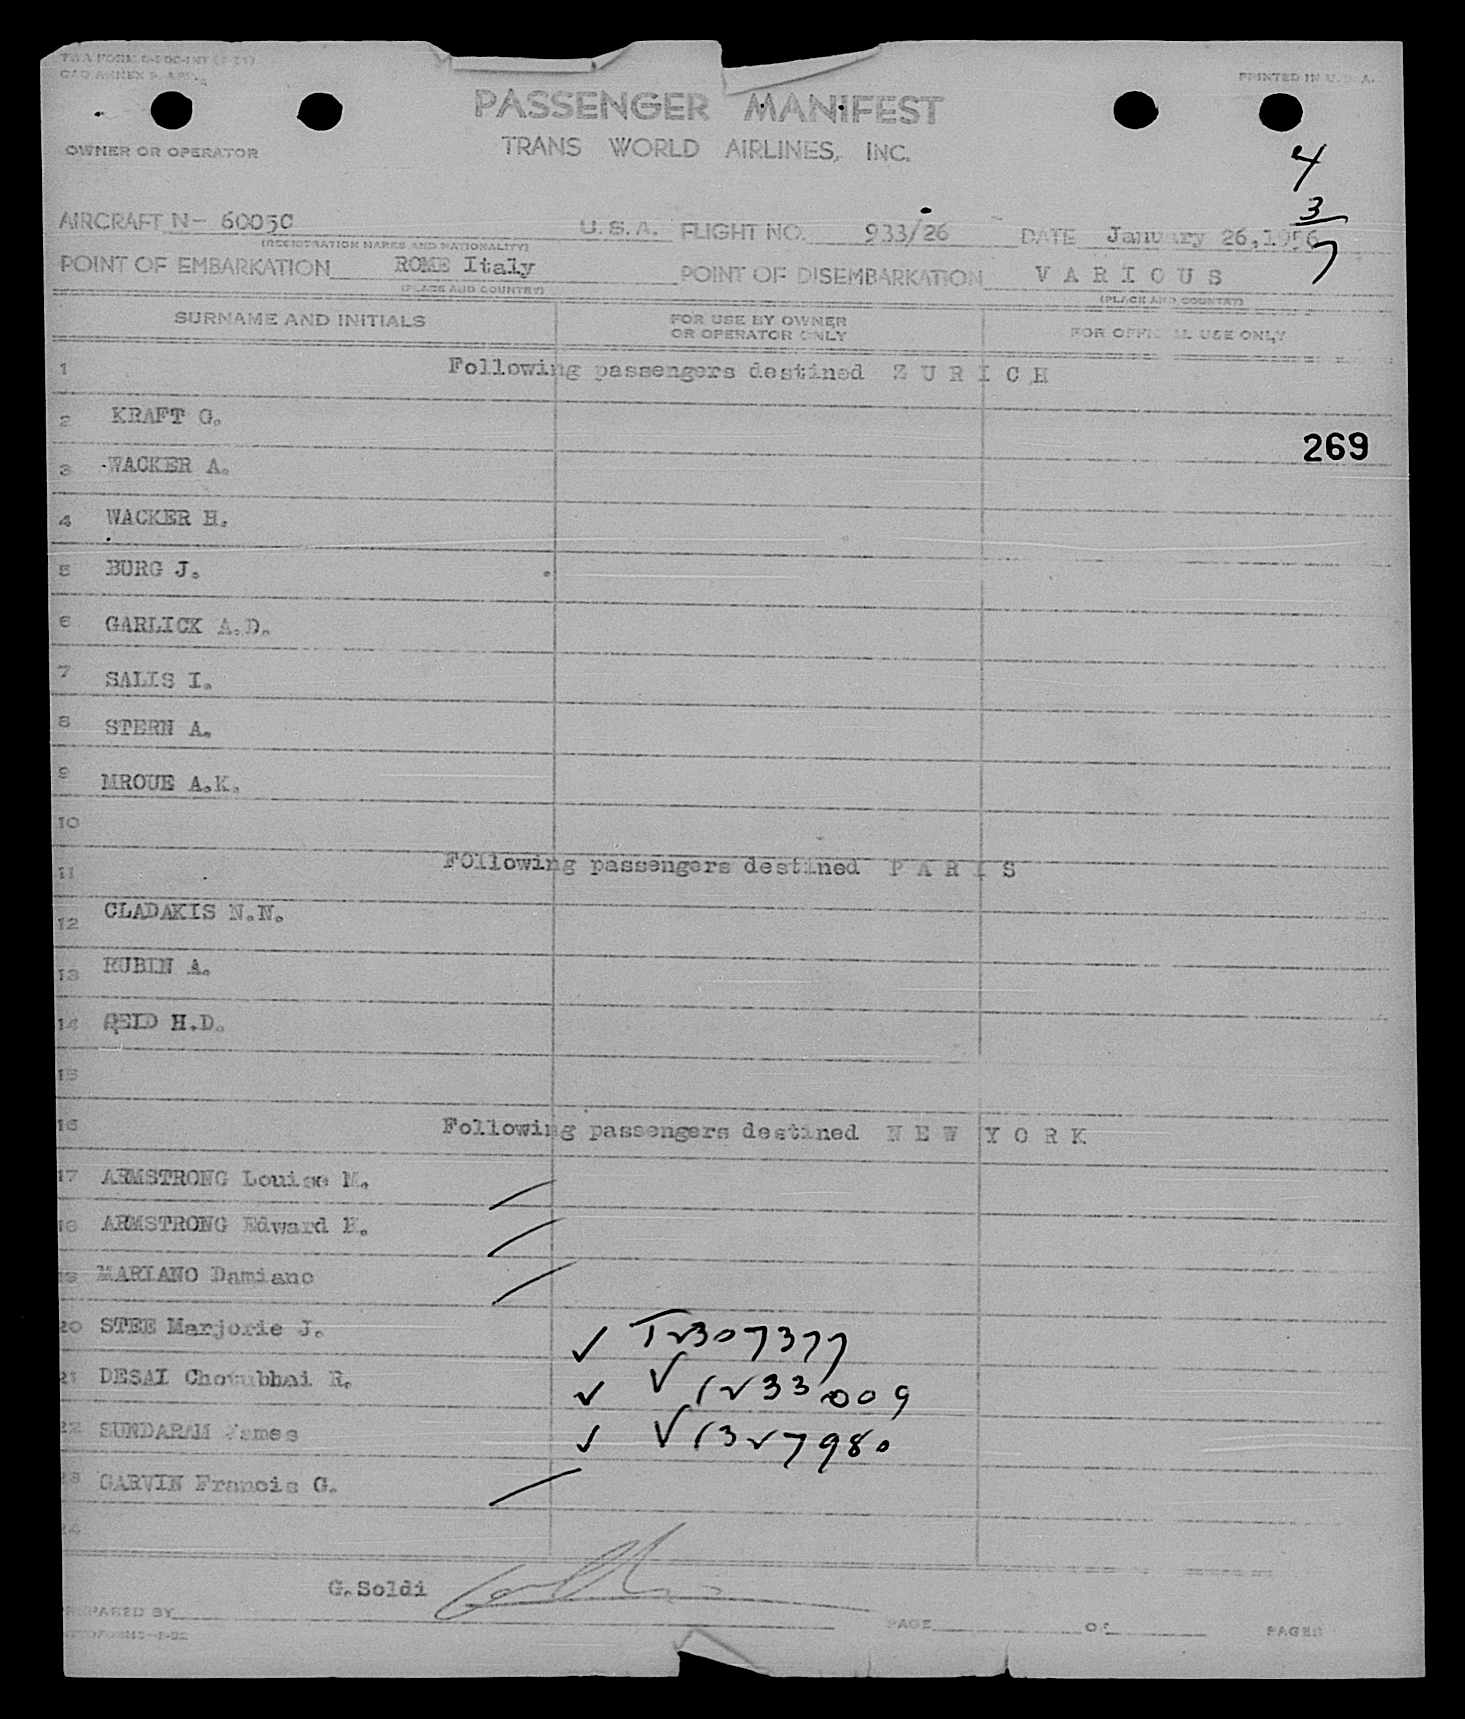 PRINTED IN U.S.A.
PASSENGER MANIFEST
OWNER OR OPERATOR TRANS WORLD AIRLINES, INC.
4
3
7
AIRCRAFT N- 6005C U.S.A. FLIGHT NO. 933/26 DATE January 26,1956
(REGISTRATION MARKS AND NATIONALITY)
POINT OF EMBARKATION ROME Italy POINT OF DISEMBARKATION V A R I O U S
(PLACE AND COUNTRY) (PLACE AND COUNTRY)
SURNAME AND INITIALS FOR USE BY OWNER OR OPERATOR ONLY FOR OFFICIAL USE ONLY
1 Following passengers destined Z U R I C H
2 KRAFT G.
269
3 WACKER A.
4 WACKER H.
5 BURG J.
6 GARLICK A.D.
7 SALIS I.
8 STERN A.
9 MROUE A.K.
10
11 FOllowing passengers destined P A R I S
12 CLADAKIS N.N.
13 RUBIN A.
14 REID H.D.
15
16 Following passengers destined N E W Y O R K
17 ARMSTRONG Louise M.
18 ARMSTRONG Edward
19 MARIANO Damiano
20 STEE Marjorie J. ✓ T2307377
21 DESAI R. ✓ V1233009
22 SUNDARAM James ✓ V1327980
23 GARVIN Francis G.
24
G.Soldi
PREPARED BY PAGE OF PAGES